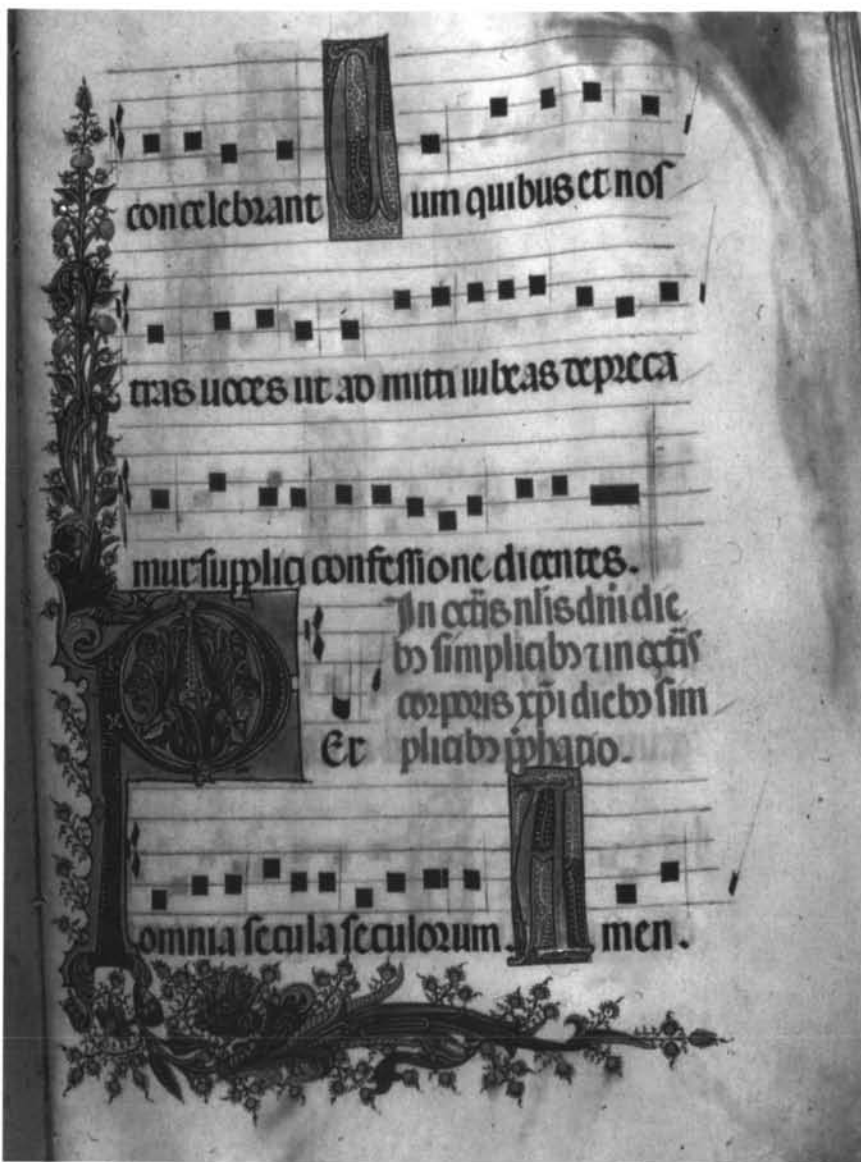 concelebrant Cum quibus et nos
tras uoces ut ad mitti iubeas depreca
mur supplici confessione dicentes.
In octis nlis dni die
bꝰ simplicibꝰ ⁊ in octis
corporis xpi diebꝰ sim
plicibꝰ p̄phatio.
Per
omnia secula seculorum. Amen.